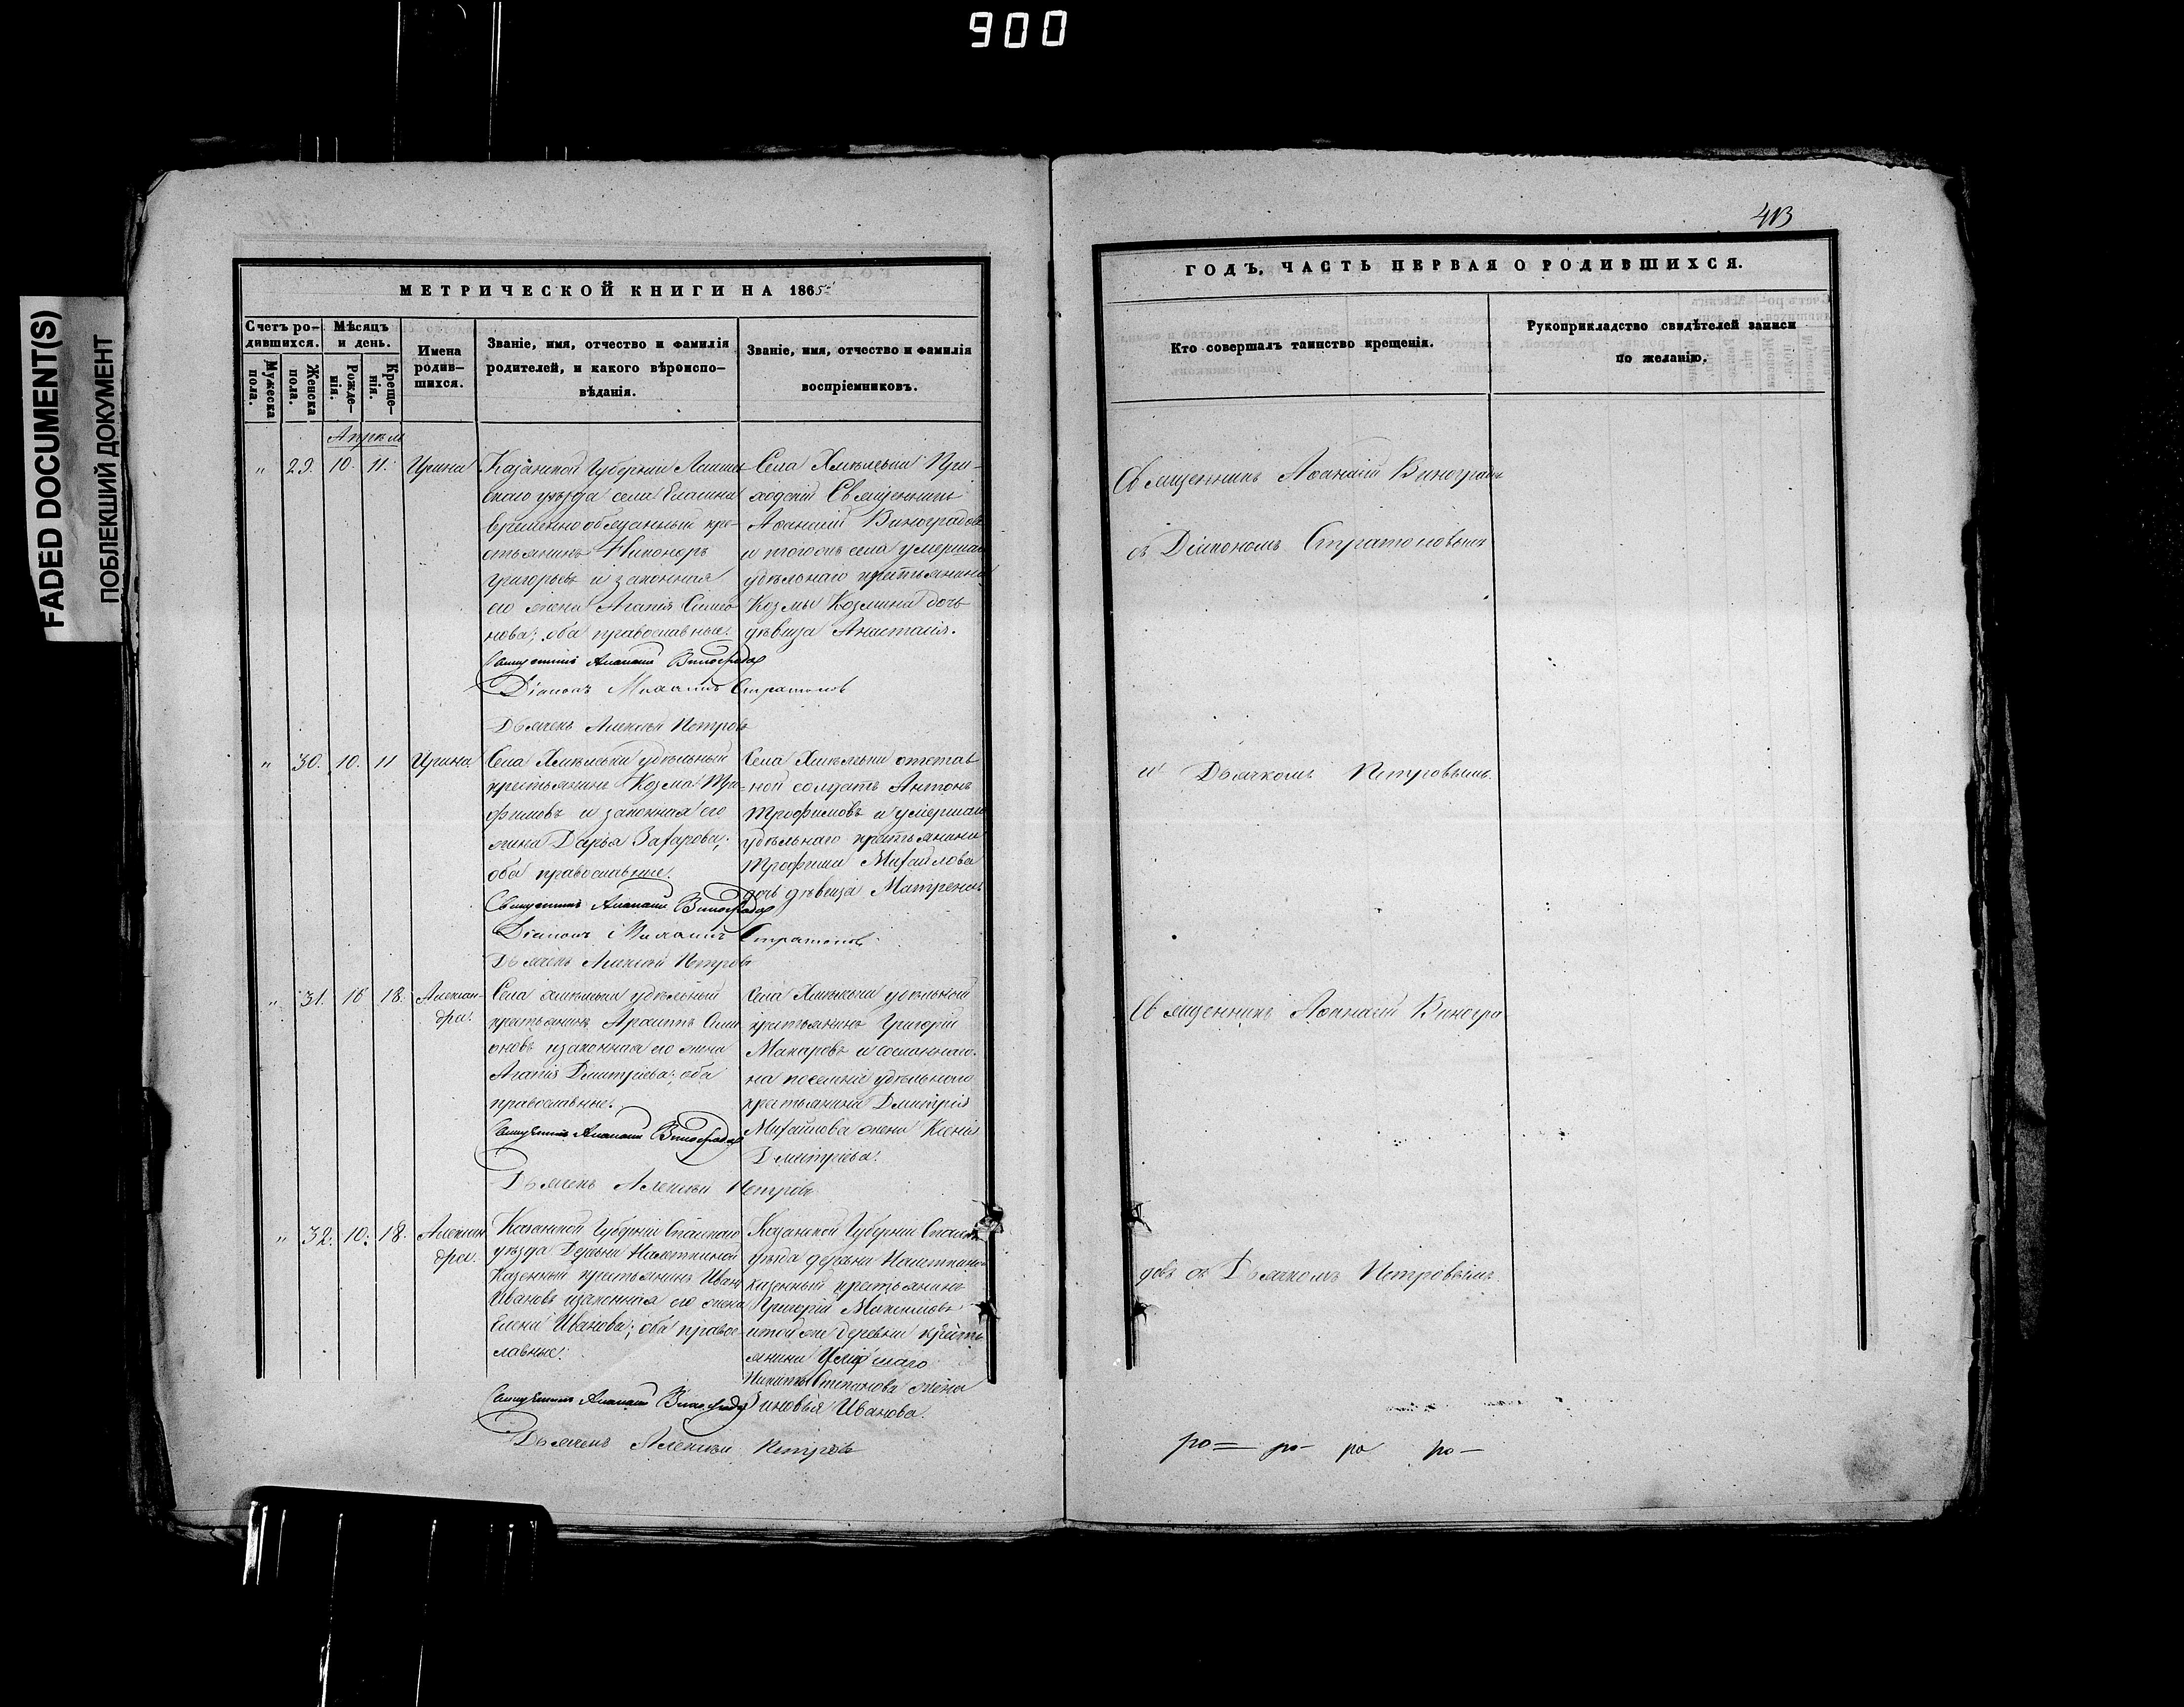 900
FADED DOCUMENT(S)
ПОБЛЕКШИЙ ДОКУМЕНТ
МЕТРИЧЕСКОЙ КНИГИ НА 1865
Счетъ ро-
дившихся.
Мужеска
пола.
Женска
пола.
Мѣсяцъ
и день.
Рожде-
нія.
Креще-
нія.
Имена
родив-
шихся.
Званіе, имя, отчество и фамилія
родителей, и какого вѣроиспо-
вѣданія.
Званіе, имя, отчество и фамилія
воспріемниковъ.
Апрѣль
" 29. 10. 11. Ирина
Казанской Губерніи Лаиш
скаго уѣзда села
временнообязанный кре-
стьянинъ Никоноръ
Григорьевъ и законная
его жена Агапія Симео
нова; оба православные.
Священникъ Аѳанасій Виноградовъ
Діаконъ Стратоновъ
Дьячекъ Алексѣй Петровъ
Села Хмѣлевки При-
ходскій Священникъ
Аѳанасій Виноградовъ
и тогожъ села умершаго
удѣлнаго крестьянина
Козмы Козмина дочь
дѣвица Анастасія.
" 30. 10. 11 Ирина
Села Хмѣлевки удѣльный
крестьянинъ Козма Тро
фимовъ и законная его
жена Дарья Захарова;
оба православные.
Священникъ Аѳанасій Виноградовъ
Діаконъ Стратоновъ
Дьячекъ Алексѣй Петровъ
Села Хмѣлевки отстав
ной солдатъ Антонъ
Трофимовъ и умершаго
удѣльнаго крестьянина
Трофима Михайлова
дочь дѣвица Матрена
" 31. 16 18. Алексан-
дра.
Села Хмѣлевки удѣльный
крестьянинъ Симе
оновъ и законная его жена
Агапія Дмитріева; оба
православные.
Священникъ Аѳанасій Виноградовъ
Дьячекъ Алексѣй Петровъ
Села Хмѣлевки удѣльный
крестьянинъ Григорій
Макаровъ и сосланнаго
на поселеніе удѣльнаго
крестьянина Дмитрія
Михайлова жена Ксенія
Дмитріева.
" 32. 10. 18. Алексан
дра.
Казанской Губерніи Спаскаго
уѣзда Деревни
Казенный крестьянинъ Иванъ
Ивановъ и законная его жена
Елена Иванова; оба правос
лавные.
Священникъ Аѳанасій Виноградовъ
Дьячекъ Алексѣй Петровъ
Казанской Губерніи Спаскаго
уѣзда деревни
казенный крестьянинъ
Григорій Максимовъ
и той же деревни кресть
янина
Никиты Степанова жена
Зиновья Иванова.
413
ГОДЪ, ЧАСТЬ ПЕРВАЯ О РОДИВШИХСЯ.
Кто совершалъ таинство крещенія.
Рукоприкладство свидѣтелей записи
по желанію.
Священникъ Аѳанасій Виноградовъ
съ Діакономъ Стратоновымъ
и Дьячкомъ Петровымъ.
Священникъ Аѳанасій Виногра
довъ съ Дьячкомъ Петровымъ.
ро= ро- ро ро-